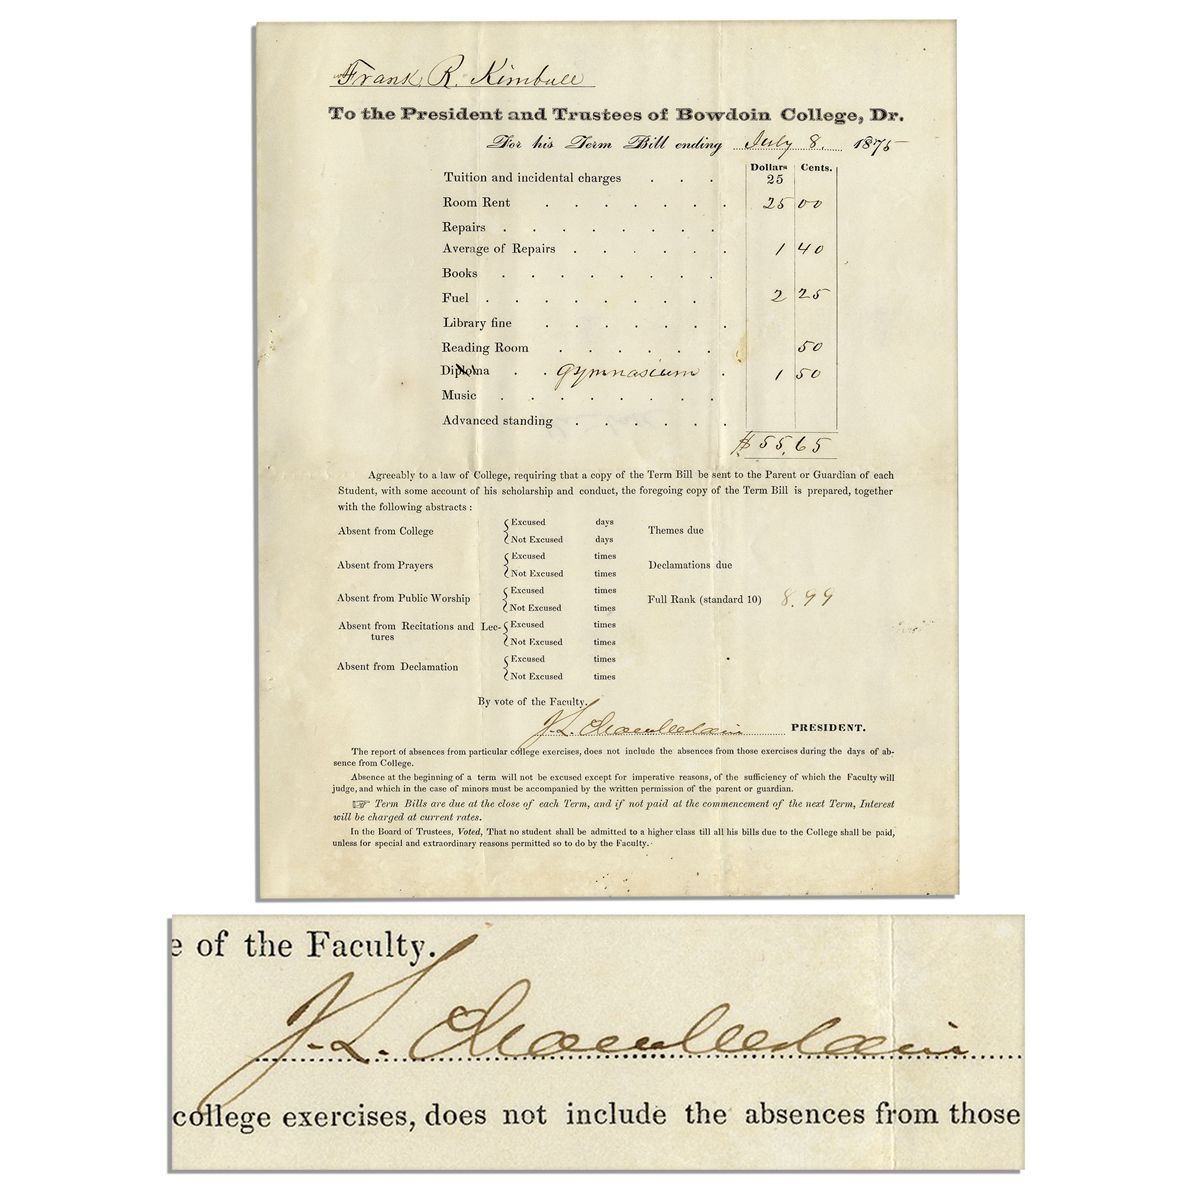 Frank R. Kimball
To the President and Trustees of Bowdoin College, Dr.
For his Term Bill ending July 8. 1875
Dollars Cents.
Tuition and incidental charges . . . 25
Room Rent . . . . . . . 25 00
Repairs . . . . . . . .
Average of Repairs . . . . . . 1 40
Books . . . . . . . .
Fuel . . . . . . . . 2 25
Library fine . . . . . . .
Reading Room . . . . . . 50
Diploma . . gymnasium . 1 50
Music . . . . . . . .
Advanced standing . . . . . .
$55.65
Agreeably to a law of College, requiring that a copy of the Term Bill be sent to the Parent or Guardian of each
Student, with some account of his scholarship and conduct, the foregoing copy of the Term Bill is prepared, together
with the following abstracts :
Absent from College { Excused days
Not Excused days
Themes due
Absent from Prayers { Excused times
Not Excused times
Declamations due
Absent from Public Worship { Excused times
Not Excused times
Full Rank (standard 10) 8.99
Absent from Recitations and Lec-
tures { Excused times
Not Excused times
Absent from Declamation { Excused times
Not Excused times
By vote of the Faculty.
J. L. Chamberlain PRESIDENT.
The report of absences from particular college exercises, does not include the absences from those exercises during the days of ab-
sence from College.
Absence at the beginning of a term will not be excused except for imperative reasons, of the sufficiency of which the Faculty will
judge, and which in the case of minors must be accompanied by the written permission of the parent or guardian.
☞ Term Bills are due at the close of each Term, and if not paid at the commencement of the next Term, Interest
will be charged at current rates.
In the Board of Trustees, Voted, That no student shall be admitted to a higher class till all his bills due to the College shall be paid,
unless for special and extraordinary reasons permitted so to do by the Faculty.
e of the Faculty.
J. L. Chamberlain
college exercises, does not include the absences from those